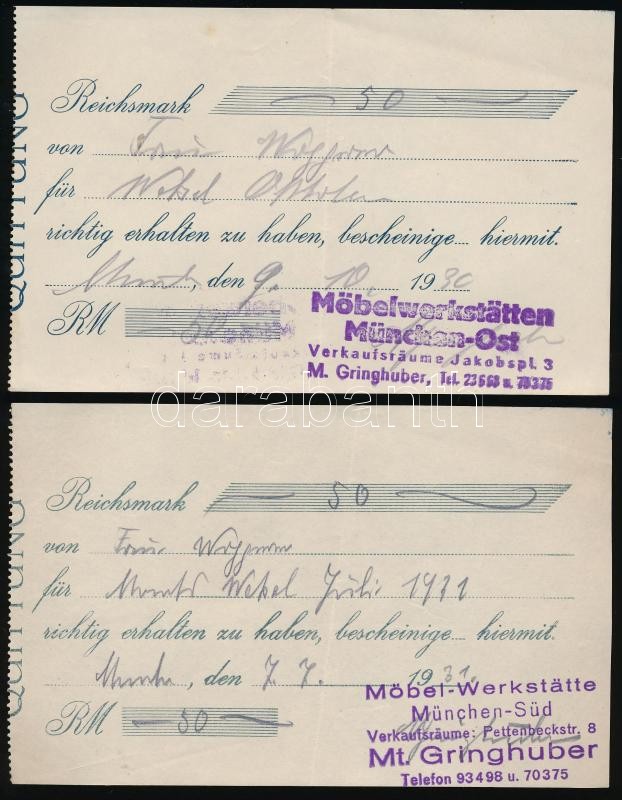 QUITTUNG
Reichsmark 50
von Frau
für Wechsel Oktober
richtig erhalten zu haben, bescheinige hiermit.
, den 9. 10. 1930
RM 50
Möbelwerkstätten
München-Ost
Verkaufsräume Jakobspl. 3
M. Gringhuber, Tel. 23668 u. 70375
darabanth
QUITTUNG
Reichsmark 50
von Frau
für Juli 1931
richtig erhalten zu haben, bescheinige hiermit.
, den 7. 7. 1931.
RM 50
Möbel-Werkstätte
München-Süd
Verkaufsräume: Pettenbeckstr. 8
Mt. Gringhuber
Telefon 93498 u. 70375